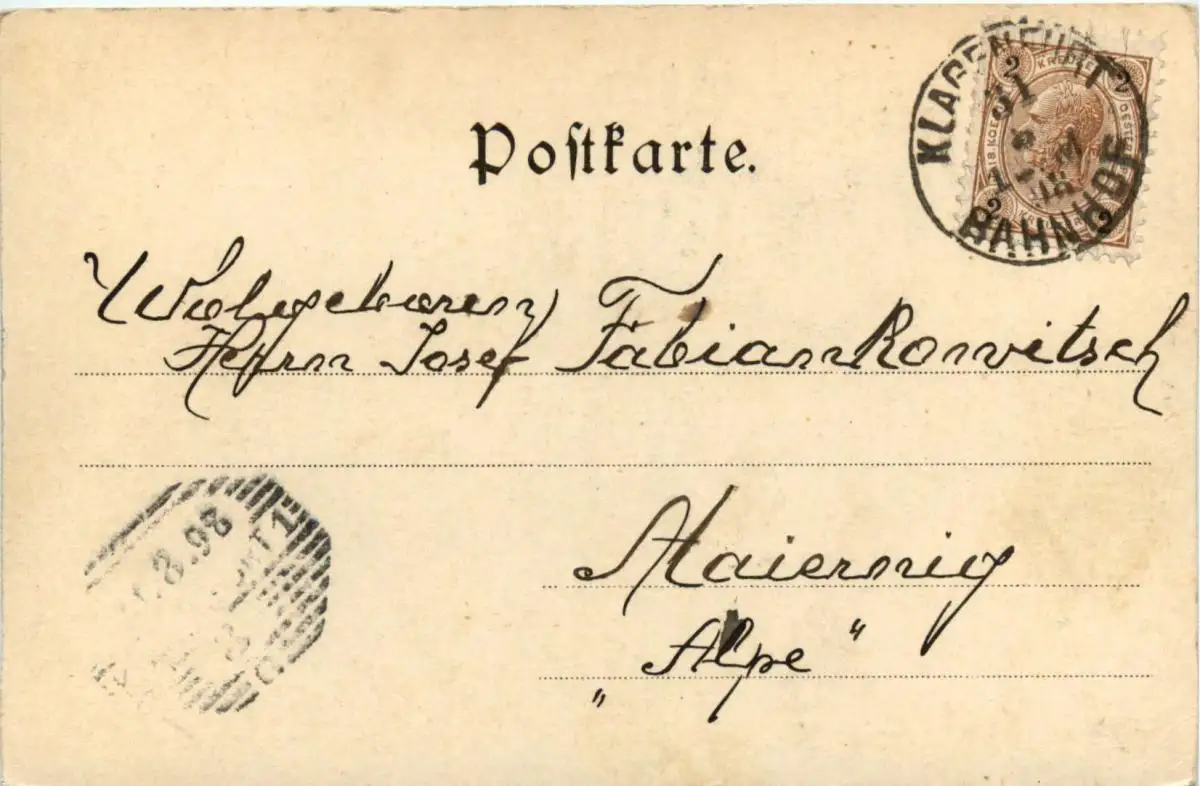 Postkarte.
KLAGENFURT
31
BAHNHOF
2 KREUZER 2
2 2
Wolgeboren
Herrn Josef Fabiankowitsch
Maiernig
„Alpe“
8.98